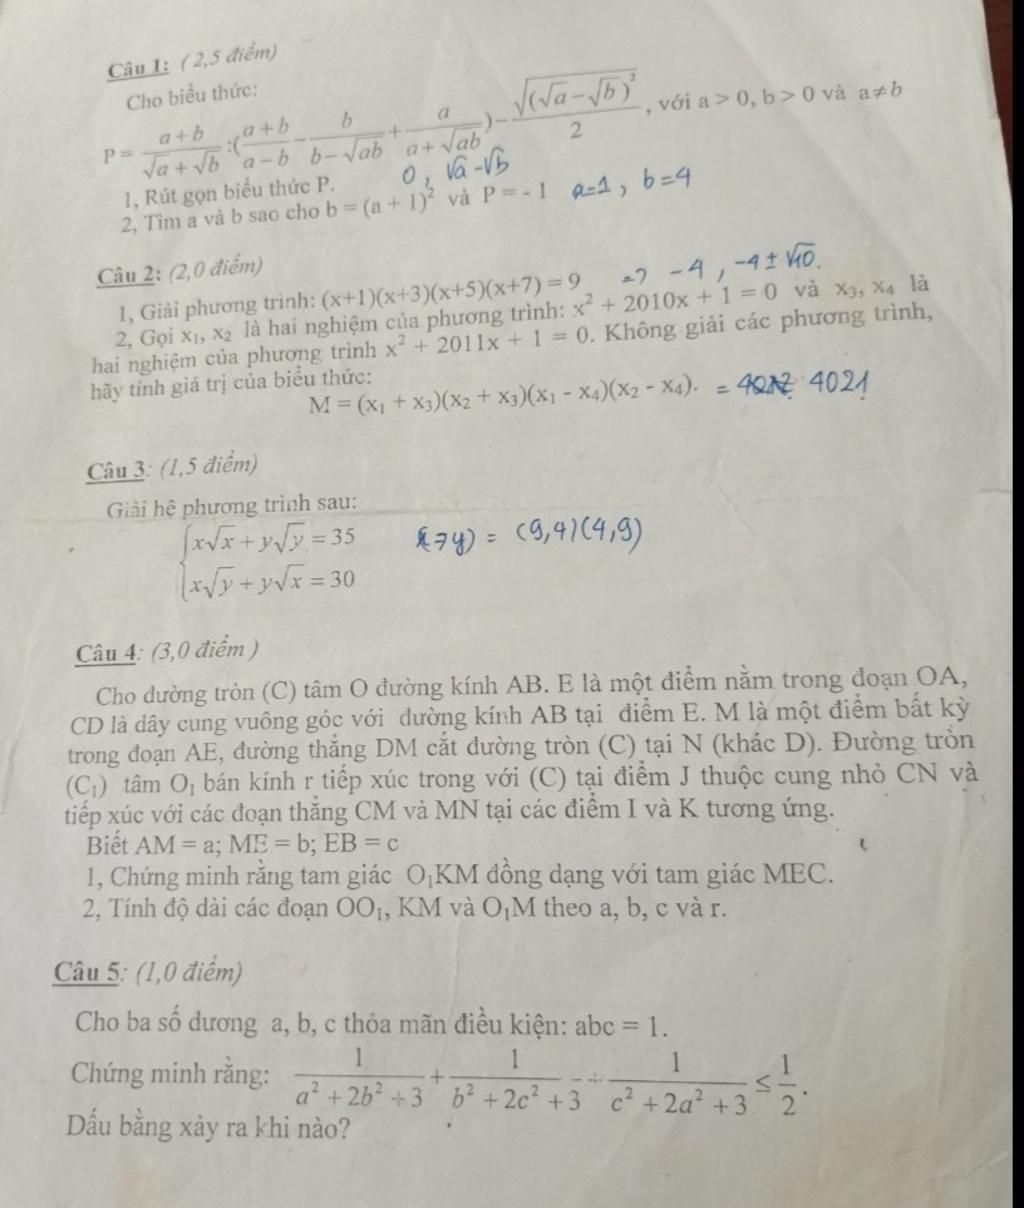 Câu 1: (2,5 điểm)
Cho biểu thức:
P = \frac{a+b}{\sqrt{a}+\sqrt{b}} : (\frac{a+b}{a-b} - \frac{b}{b-\sqrt{ab}} + \frac{a}{a+\sqrt{ab}}) - \frac{\sqrt{(\sqrt{a}-\sqrt{b})^2}}{2}, với a > 0, b > 0 và a≠b
1, Rút gọn biểu thức P. 0, √a-√b
2, Tìm a và b sao cho b = (a + 1)² và P = - 1 a=1, b=4
Câu 2: (2,0 điểm)
1, Giải phương trình: (x+1)(x+3)(x+5)(x+7) = 9 => -4, -4 ± √10.
2, Gọi x₁, x₂ là hai nghiệm của phương trình: x² + 2010x + 1 = 0 và x₃, x₄ là
hai nghiệm của phương trình x² + 2011x + 1 = 0. Không giải các phương trình,
hãy tính giá trị của biểu thức:
M = (x₁ + x₃)(x₂ + x₃)(x₁ - x₄)(x₂ - x₄). = 4021
Câu 3: (1,5 điểm)
Giải hệ phương trình sau:
x√x + y√y = 35 (x,y) = (9,4)(4,9)
x√y + y√x = 30
Câu 4: (3,0 điểm )
Cho đường tròn (C) tâm O đường kính AB. E là một điểm nằm trong đoạn OA,
CD là dây cung vuông góc với đường kính AB tại điểm E. M là một điểm bất kỳ
trong đoạn AE, đường thẳng DM cắt đường tròn (C) tại N (khác D). Đường tròn
(C₁) tâm O₁ bán kính r tiếp xúc trong với (C) tại điểm J thuộc cung nhỏ CN và
tiếp xúc với các đoạn thẳng CM và MN tại các điểm I và K tương ứng.
Biết AM = a; ME = b; EB = c
1, Chứng minh rằng tam giác O₁KM đồng dạng với tam giác MEC.
2, Tính độ dài các đoạn OO₁, KM và O₁M theo a, b, c và r.
Câu 5: (1,0 điểm)
Cho ba số dương a, b, c thỏa mãn điều kiện: abc = 1.
Chứng minh rằng: \frac{1}{a²+2b²+3} + \frac{1}{b²+2c²+3} + \frac{1}{c²+2a²+3} ≤ \frac{1}{2}.
Dấu bằng xảy ra khi nào?